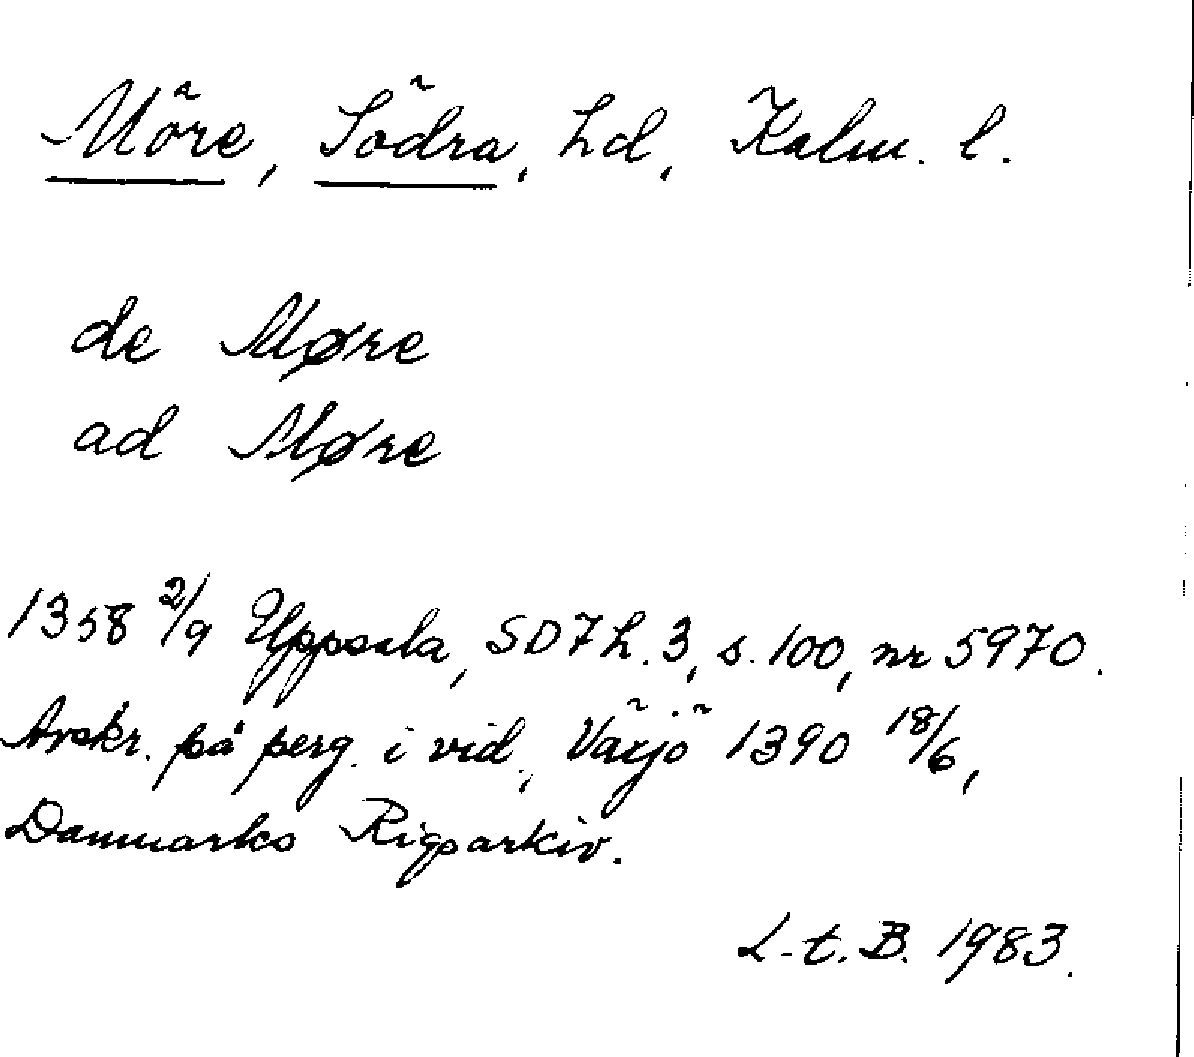 Möre, Södra, hd, Kalm. l.
de Møre
ad Møre
1358 2/9 Uppsala, SD7 h. 3, s. 100, nr 5970.
Avskr. på perg. i vid., Växjö 1390 18/6,
Danmarks Rigsarkiv.
L. t. B. 1983.